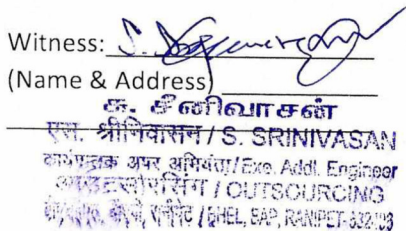 Witness:
(Name & Address)
சு. சீனிவாசன்
एस. श्रीनिवासन / S. SRINIVASAN
कार्यपालक अपर अभियंता / Exe. Addl. Engineer
आउटसोर्सिंग / OUTSOURCING
/ BHEL, BAP, RANIPET-632